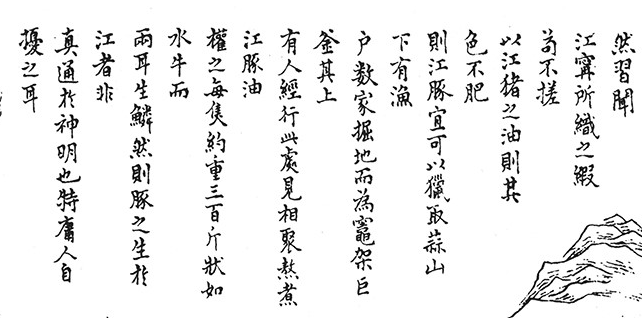 然習聞
江寧所織之緞
苟不搓
以江猪之油則其
色不肥
則江豚宜可以獵取蒜山
下有漁
户数家掘地而為竈架巨
釜其上
有人經行此處見相聚熬煮
江豚油
權之每隻約重三百斤狀如
水牛而
兩耳生鱗然則豚之生於
江者非
真通於神明也特庸人自
擾之耳